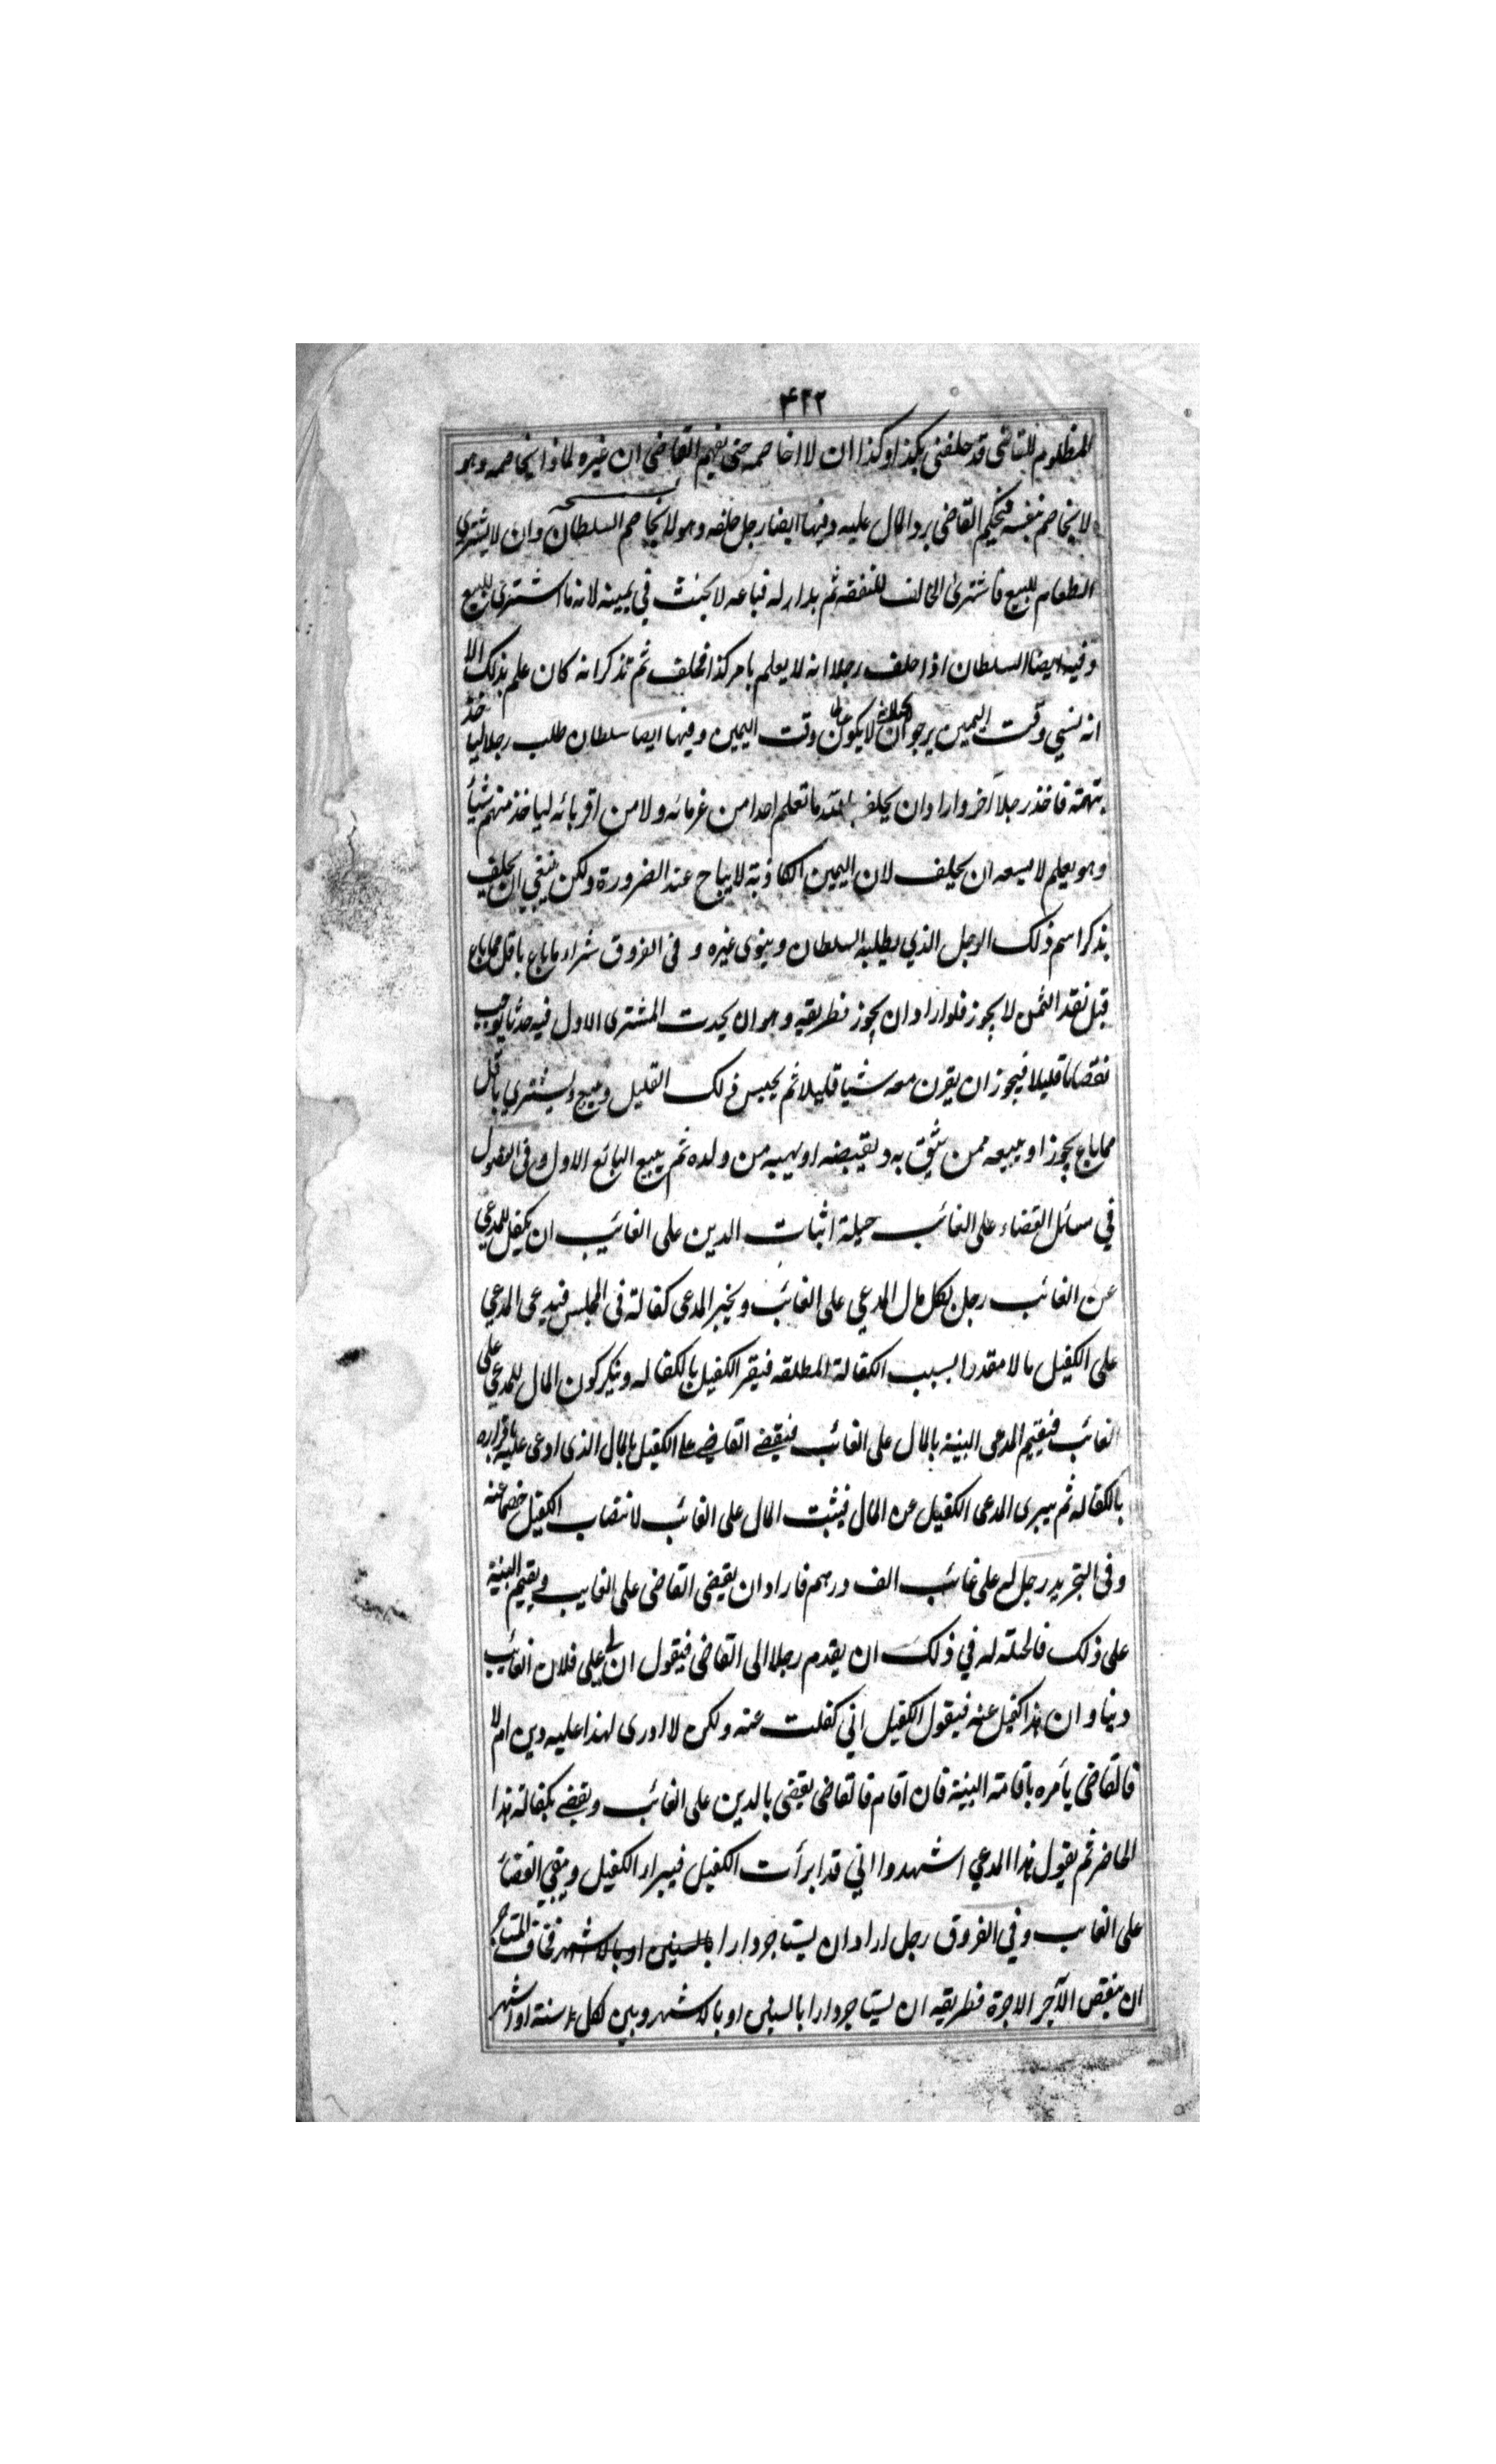 ۴۲۲
المظلوم للقاضي قد حلفني بكذا وكذا ان لا اخاصمه حتى يفهم القاضي ان غيره لماذا يخاصمه وهو
لا يخاصم بنفسه فيحكم القاضي برد المال عليه وفيها ايضا رجل حلفه وهو لا يخاصم السلطان وان لا يشتري
الطعام للبيع فاشترى الحالف للنفقة ثم بدا له فباعه لا يحنث في يمينه لانه ما اشترى للبيع
وفيه ايضا السلطان اذا حلف رجلا انه لا يعلم بامر كذا فحلف ثم تذكر انه كان علم بذلك الا
انه نسي وقت اليمين يرجو ان لا يكون وقت اليمين وفيها ايضا سلطان طلب رجلا لياخذ
بتهمة فاخذ رجلا آخر واراد ان يحلف بالله ما تعلم احدا من غرمائه ولا من اقربائه لياخذ منهم شيأ
وهو يعلم لا يسعه ان يحلف لان اليمين الكاذبة لا يباح عند الضرورة ولكن ينبغي ان يحلف
يذكر اسم ذلك الرجل الذي يطلبه السلطان وينوى غيره وفى الفروق شراء ما باع باقل مما باع
قبل نقد الثمن لا يجوز فلو اراد ان يجوز فطريقه وهو ان يحدث المشترى الاول فيه حدثا يوجب
نقصانا قليلا فيجوز ان يقرن معه شيا قليلا ثم يحبس ذلك القليل ويبيع ويشتري باقل
مما باع يجوز او يبيعه ممن يثق به ويقبضه او يهبه من ولده ثم يبيع البائع الاول وفى الفصول
في مسائل القضاء على الغائب حيلة اثبات الدين على الغائب ان يكفل للمدعي
عن الغائب رجل بكل مال المدعي على الغائب ويخبر المدعى كفالة فى المجلس فيدعى المدعي
على الكفيل مالا مقدرا بسبب الكفالة المطلقه فيقر الكفيل بالكفاله وينكر كون المال للمدعي على
الغائب فيقيم المدعى البينة بالمال على الغائب فيقضى القاضي على الكفيل بالمال الذى ادعى عليه باقراره
بالكفاله ثم يبرى المدعى الكفيل عن المال فيثبت المال على الغائب لانتصاب الكفيل خصما عنه
وفى التجريد رجل له على غائب الف درهم فاراد ان يقضى القاضى على الغايب ويقيم البينة
على ذلك فالحيلة له في ذلك ان يقدم رجلا الى القاضى فيقول ان لي على فلان الغائب
دينا وان هذا كفيل عنه فيقول الكفيل اني كفلت عنه ولكن لا ادرى لهذا عليه دين ام لا
فالقاضى يأمره باقامة البينة فان اقام فالقاضى يقضى بالدين على الغائب ويقضى بكفالة هذا
الحاضر ثم يقول هذا المدعي اشهدوا اني قد ابرأت الكفيل فيبراء الكفيل ويبقى القضاء
على الغايب وفي الفروق رجل اراد ان يستاجر دارا بالسنين او بالاشهر فخاف المستاجر
ان ينقص الآجر الاجرة فطريقه ان يستاجر دارا بالسنين او بالاشهر وبين لكل سنة او اشهر